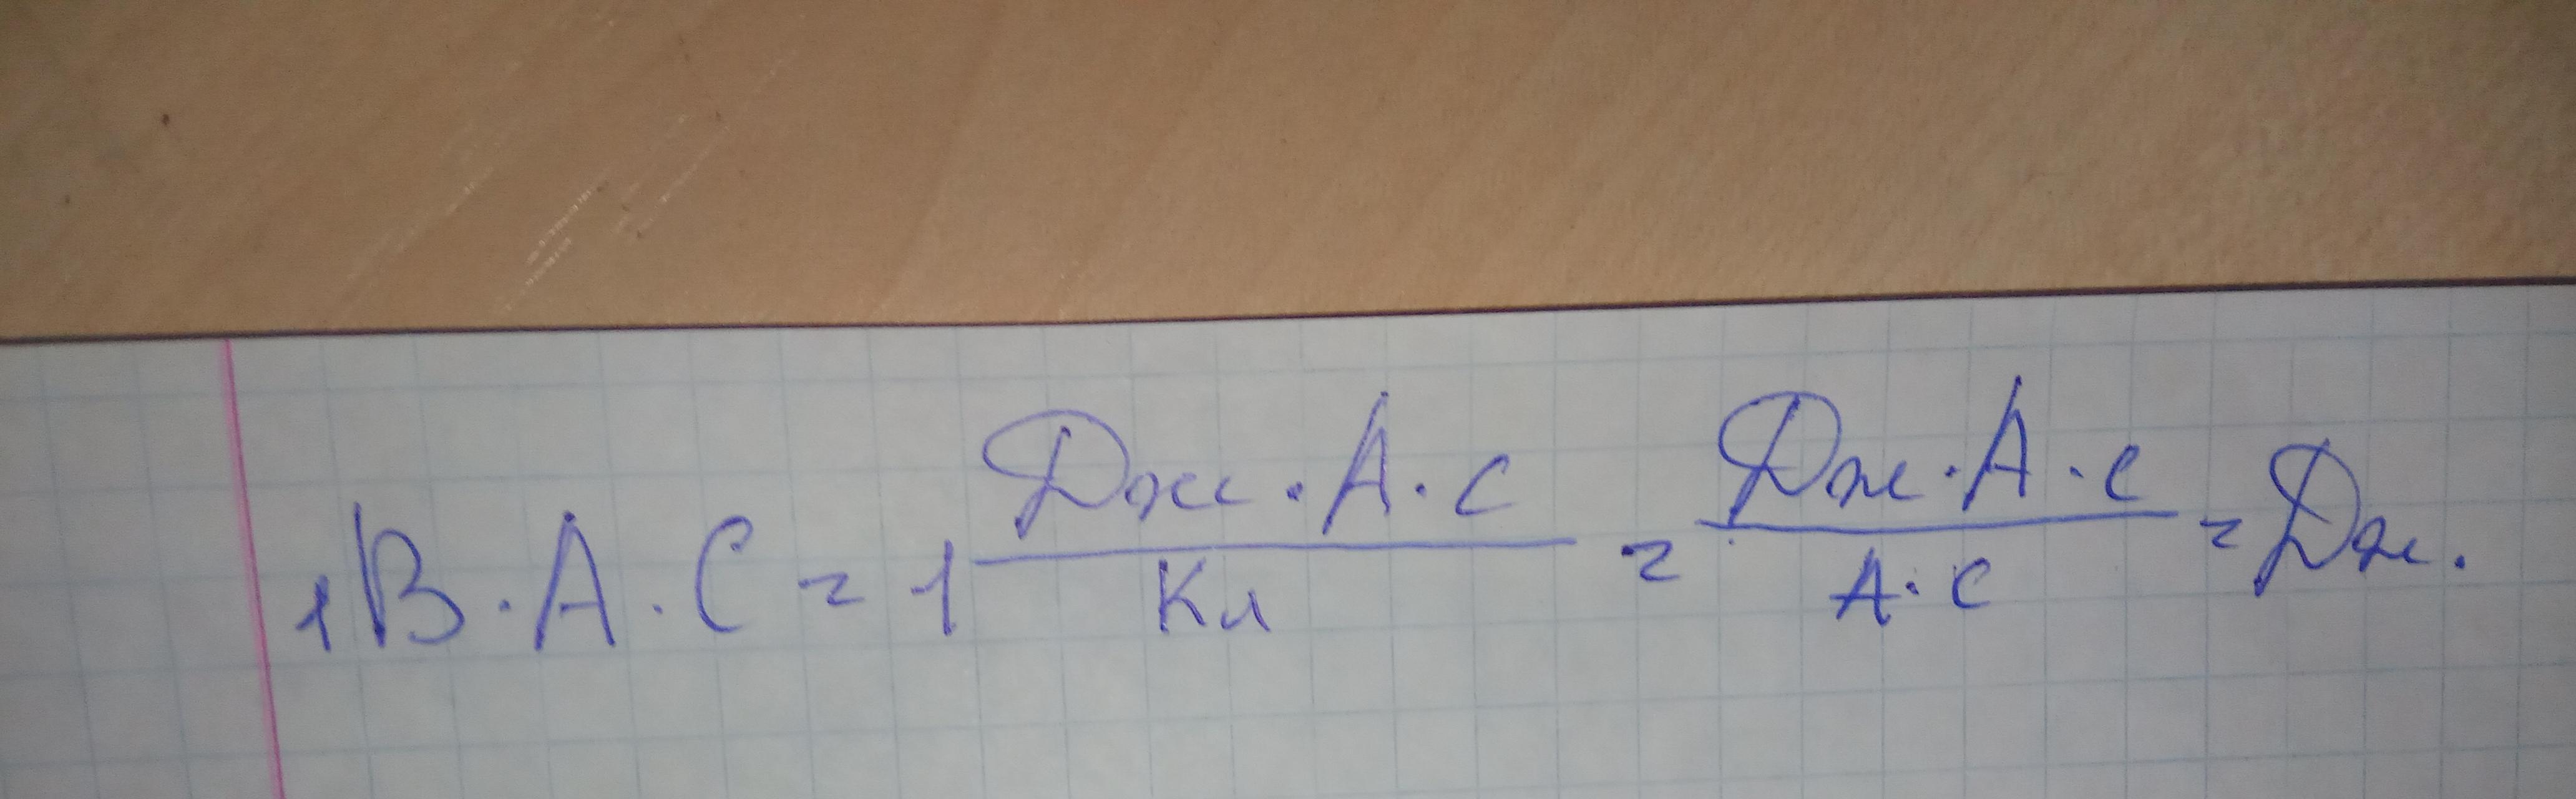 1 В · А · С = 1 Дж · А · с / Кл = Дж · А · с / А · с = Дж.